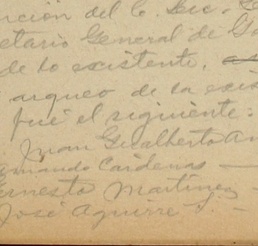 nción del C. Lic.
etario General de Go
de lo existente,
arqueo de la exis
fué el siguiente:
Juan Gualberto Am
Armando Cárdenas
ernesto Martínez
José Aguirre